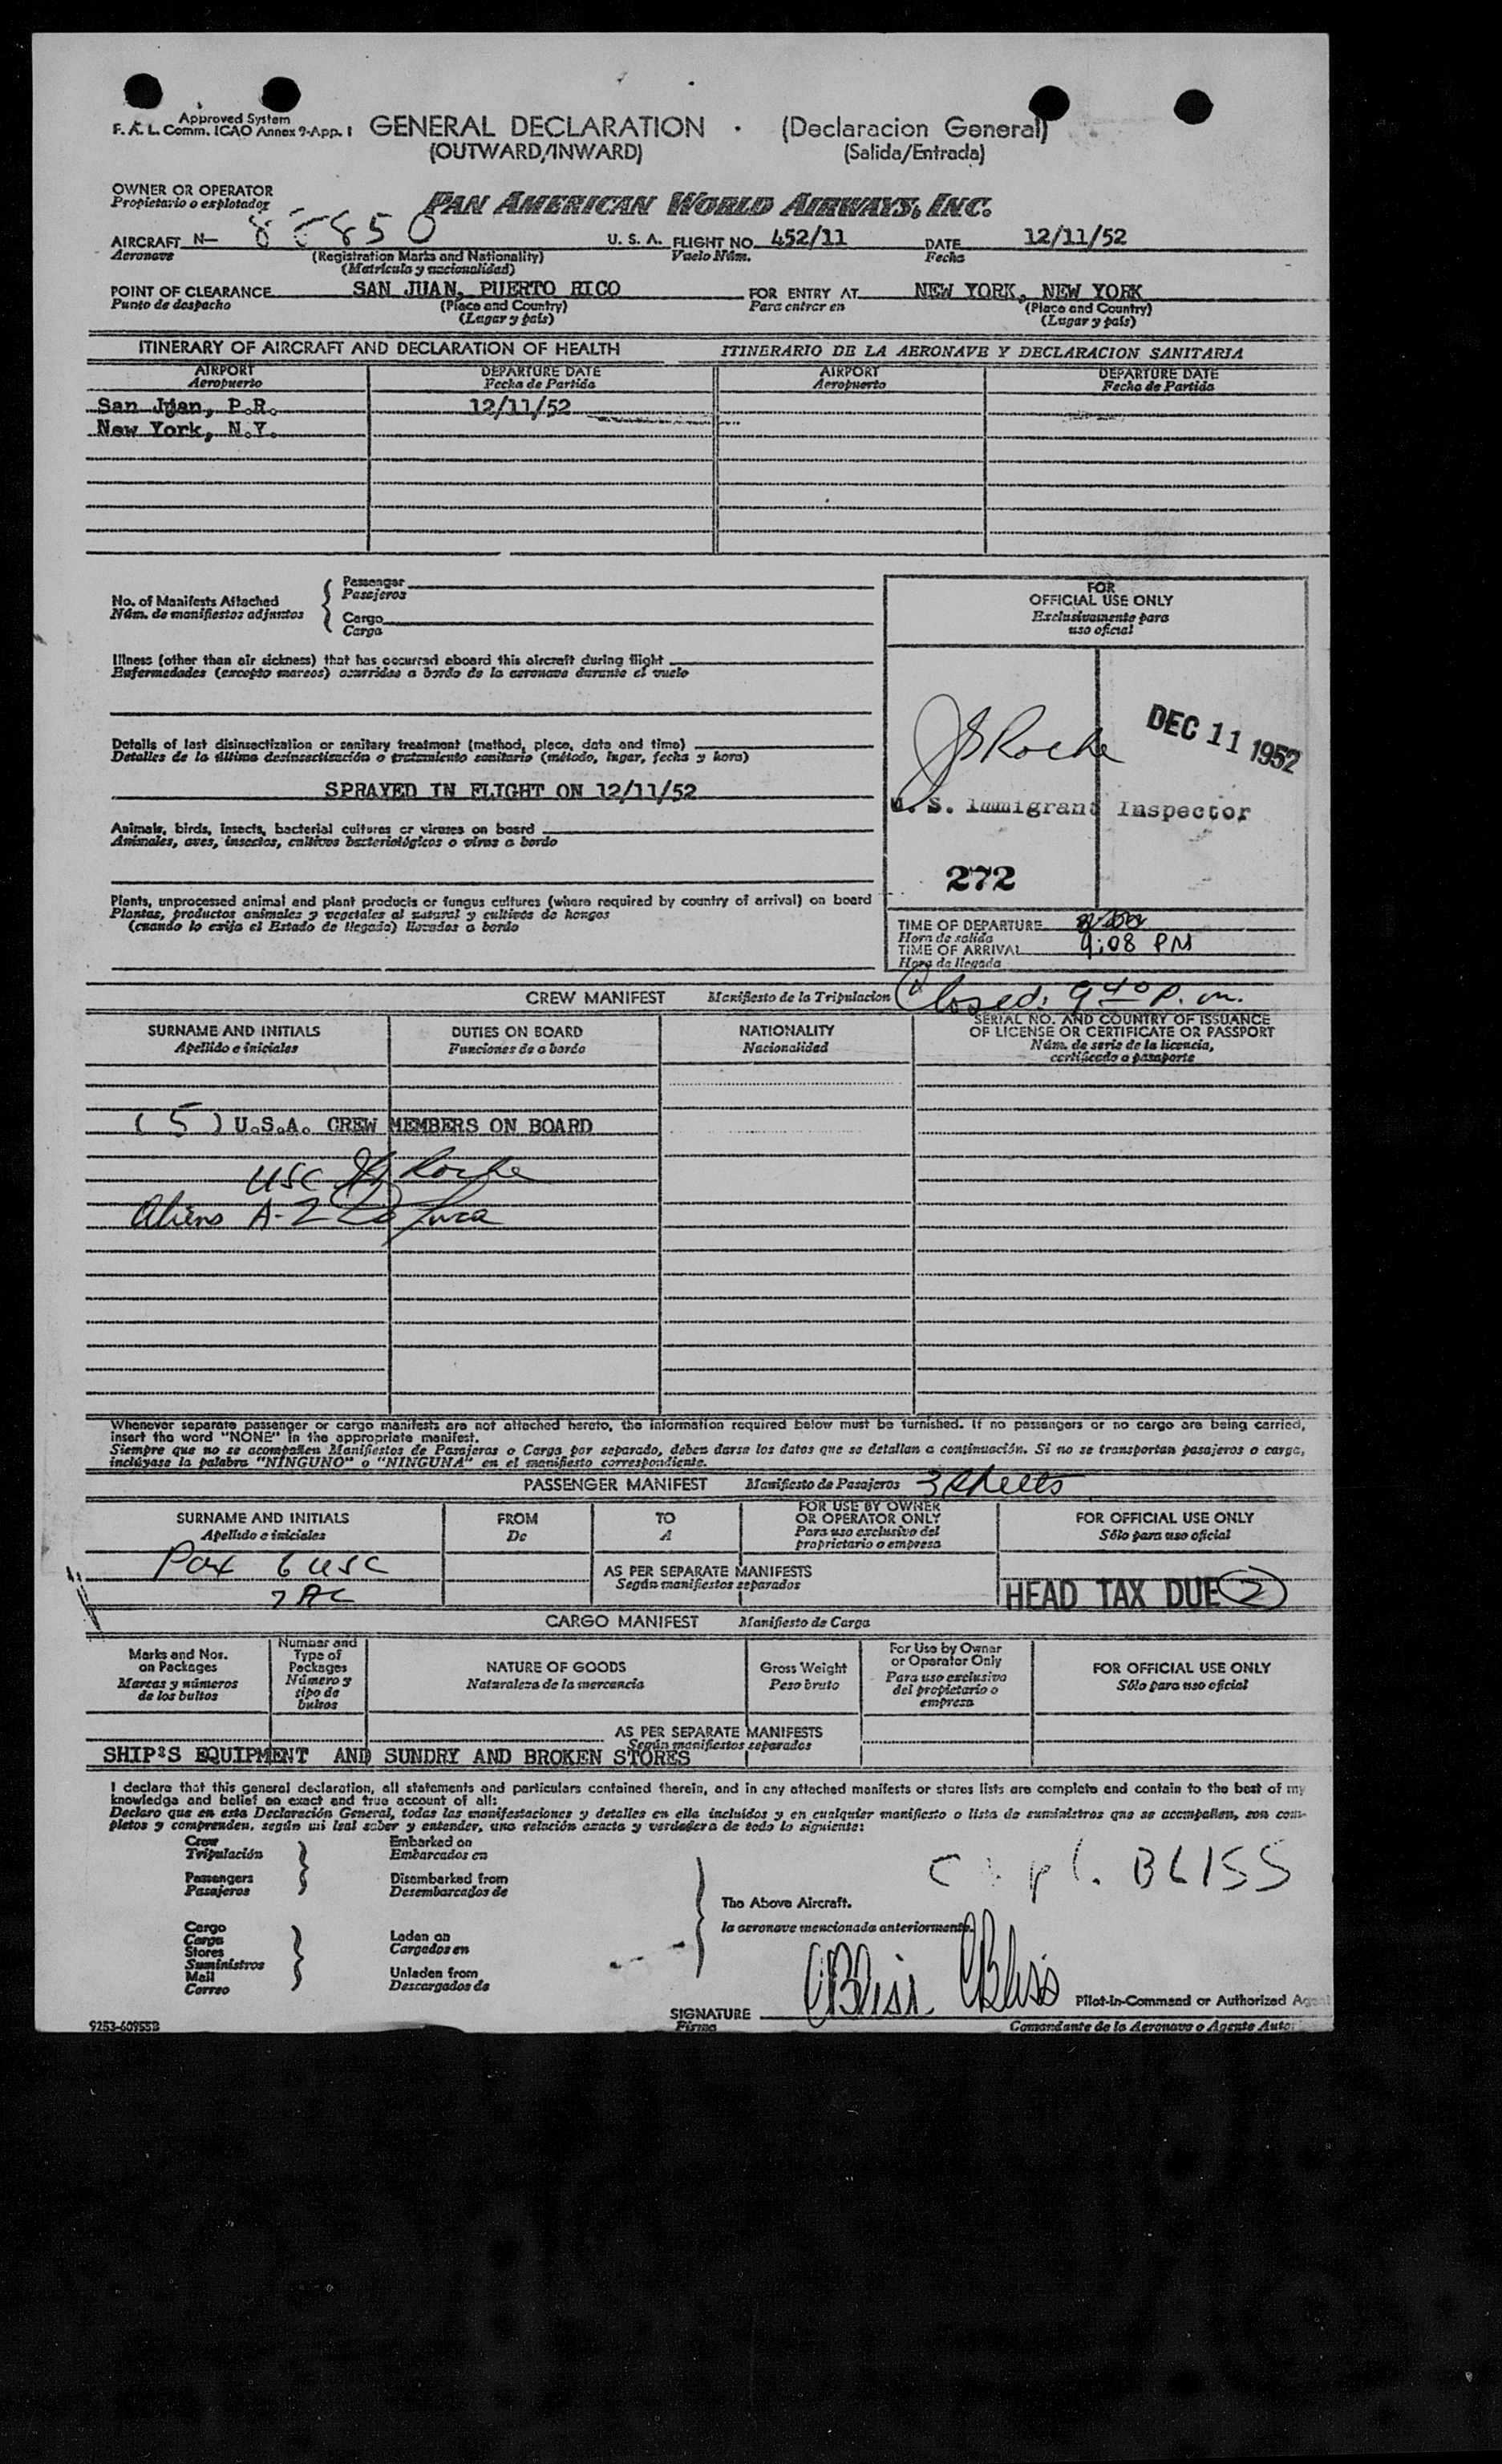 Approved System
F. A. L. Comm. ICAO Annex 9-App. 1
GENERAL DECLARATION · (Declaracion General)
(OUTWARD/INWARD) (Salida/Entrada)
OWNER OR OPERATOR
Propietario o explotador
PAN AMERICAN WORLD AIRWAYS, INC.
AIRCRAFT N- U. S. A. FLIGHT NO. 452/11 DATE 12/11/52
Aeronave (Registration Marks and Nationality) Vuelo Núm. Fecha
(Matrícula y nacionalidad)
POINT OF CLEARANCE SAN JUAN, PUERTO RICO FOR ENTRY AT NEW YORK, NEW YORK
Punto de despacho (Place and Country) Para entrar en (Place and Country)
(Lugar y país) (Lugar y país)
ITINERARY OF AIRCRAFT AND DECLARATION OF HEALTH ITINERARIO DE LA AERONAVE Y DECLARACION SANITARIA
AIRPORT DEPARTURE DATE AIRPORT DEPARTURE DATE
Aeropuerto Fecha de Partida Aeropuerto Fecha de Partida
San Juan, P.R. 12/11/52
New York, N.Y.
No. of Manifests Attached
Núm. de manifiestos adjuntos
Passenger
Pasajeros
Cargo
Carga
Illness (other than air sickness) that has occurred aboard this aircraft during flight
Enfermedades (excepto mareos) ocurridas a bordo de la aeronave durante el vuelo
Details of last disinsectization or sanitary treatment (method, place, date and time)
Detalles de la última desinsectización o tratamiento sanitario (método, lugar, fecha y hora)
SPRAYED IN FLIGHT ON 12/11/52
Animals, birds, insects, bacterial cultures or viruses on board
Animales, aves, insectos, cultivos bacteriológicos o virus a bordo
Plants, unprocessed animal and plant products or fungus cultures (where required by country of arrival) on board
Plantas, productos animales y vegetales al natural y cultivos de hongos
(cuando lo exija el Estado de llegada) llevados a bordo
FOR
OFFICIAL USE ONLY
Exclusivamente para
uso oficial
JS Roche
DEC 11 1952
U. S. Immigrant Inspector
272
TIME OF DEPARTURE
Hora de salida
TIME OF ARRIVAL 9:08 PM
Hora de llegada
CREW MANIFEST Manifiesto de la Tripulacion Closed: 9 40 p.m.
SURNAME AND INITIALS DUTIES ON BOARD NATIONALITY SERIAL NO. AND COUNTRY OF ISSUANCE
OF LICENSE OR CERTIFICATE OR PASSPORT
Apellido e iniciales Funciones de a bordo Nacionalidad Núm. de serie de la licencia,
certificado o pasaporte
( 5 ) U.S.A. CREW MEMBERS ON BOARD
USC JS Roche
Aliens A-2
Whenever separate passenger or cargo manifests are not attached hereto, the information required below must be furnished. If no passengers or no cargo are being carried,
insert the word "NONE" in the appropriate manifest.
Siempre que no se acompañen Manifiestos de Pasajeros o Carga por separado, deben darse los datos que se detallan a continuación. Si no se transportan pasajeros o carga,
inclúyase la palabra "NINGUNO" o "NINGUNA" en el manifiesto correspondiente.
PASSENGER MANIFEST Manifiesto de Pasajeros 3 sheets
SURNAME AND INITIALS FROM TO FOR USE BY OWNER
OR OPERATOR ONLY FOR OFFICIAL USE ONLY
Apellido e iniciales De A Para uso exclusivo del
propietario o empresa Sólo para uso oficial
Pax 6 USC
AS PER SEPARATE MANIFESTS
Según manifiestos separados
HEAD TAX DUE 2
CARGO MANIFEST Manifiesto de Carga
Marks and Nos.
on Packages
Marcas y números
de los bultos
Number and
Type of
Packages
Número y
tipo de
bultos
NATURE OF GOODS
Naturaleza de la mercancía
Gross Weight
Peso bruto
For Use by Owner
or Operator Only
Para uso exclusivo
del propietario o
empresa
FOR OFFICIAL USE ONLY
Sólo para uso oficial
AS PER SEPARATE MANIFESTS
Según manifiestos separados
SHIP'S EQUIPMENT AND SUNDRY AND BROKEN STORES
I declare that this general declaration, all statements and particulars contained therein, and in any attached manifests or stores lists are complete and contain to the best of my
knowledge and belief an exact and true account of all:
Declaro que en esta Declaración General, todas las manifestaciones y detalles en ella incluidos y en cualquier manifiesto o lista de suministros que se acompañen, son com-
pletos y comprenden, según mi leal saber y entender, una relación exacta y verdadera de todo lo siguiente:
Crew Embarked on
Tripulación Embarcados en
Passengers Disembarked from
Pasajeros Desembarcados de
Cargo
Carga
Stores
Suministros
Mail
Correo
Laden on
Cargados en
Unladen from
Descargados de
Capt. BLISS
The Above Aircraft.
la aeronave mencionada anteriormente.
CBliss CBliss
SIGNATURE Pilot-in-Command or Authorized Agent
Firma Comandante de la Aeronave o Agente Auto
9253-60955B